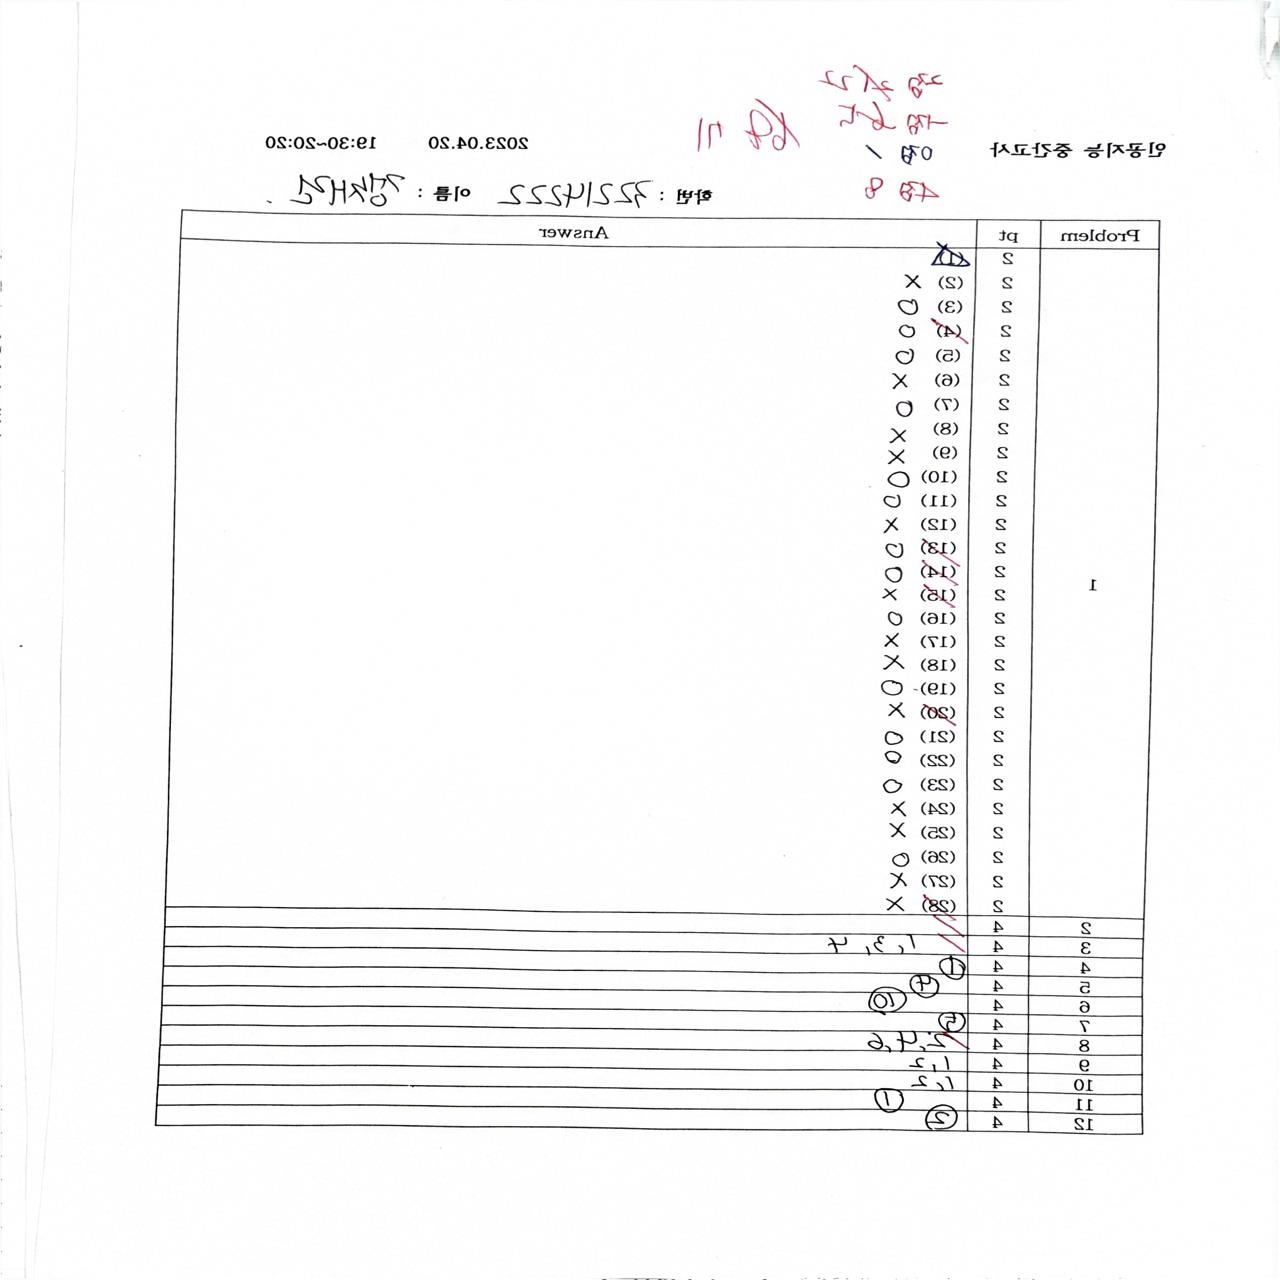 인공지능 중간고사 2023.04.20 19:30~20:20
0점 1
4점 8
학번 : 32214222 이름 :
Problem pt Answer
1
2 (1)
2 (2) X
2 (3) O
2 (4) O
2 (5) O
2 (6) X
2 (7) O
2 (8) X
2 (9) X
2 (10) O
2 (11) O
2 (12) X
2 (13) O
2 (14) O
2 (15) X
2 (16) O
2 (17) X
2 (18) X
2 (19) O
2 (20) X
2 (21) O
2 (22) O
2 (23) O
2 (24) X
2 (25) X
2 (26) O
2 (27) X
2 (28) X
2 4
3 4 1, 3, 4
4 4 ①
5 4 ④
6 4 ⑩
7 4 ⑤
8 4 2, 4, 6
9 4 1, 2
10 4 1, 2
11 4 ①
12 4 ②